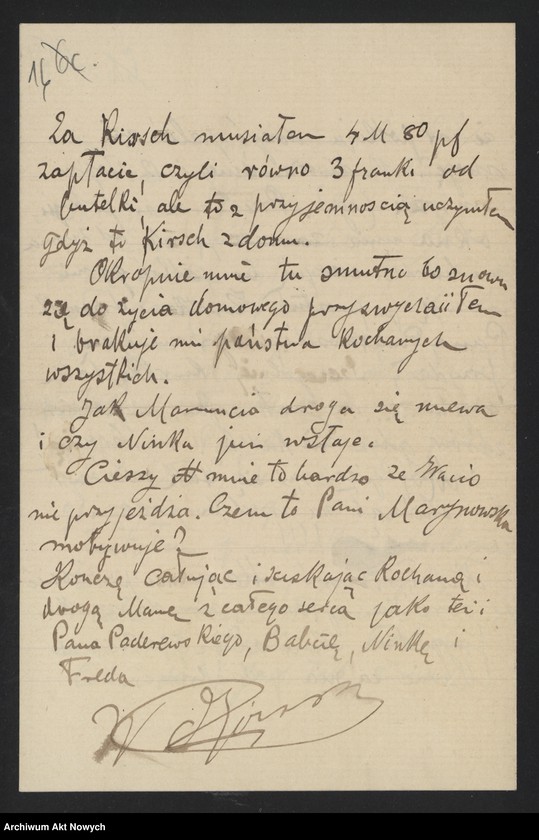 16
Za Kirsch musiałem 4 M 80 pf
zapłacić, czyli równo 3 franki od
butelki, ale to z przyjemnością uczyniłem
gdyż to Kirsch z domu.
Okropnie mnie tu smutno bo znowu
się do życia domowego przyzwyczaiłem
i brakuje mi państwa Kochanych
wszystkich.
Jak Mamuncia droga się miewa
i czy Ninka już wstaje.
Cieszy mnie to bardzo że Wacio
nie przyjeżdza. Czem to Pani Marynowska
motywuje?
Konczę całując i sciskając Kochaną i
drogą Mamę z całego serca jako też i
Pana Paderewskiego, Babcię, Ninkę i
Freda
W Górski
Archiwum Akt Nowych